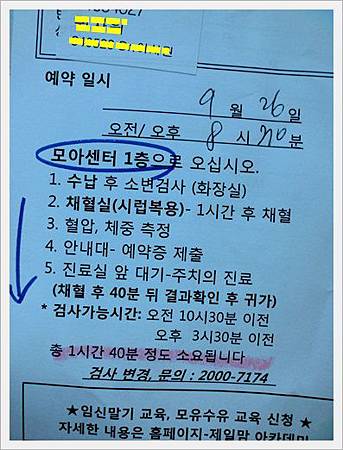 예약 일시
9 월 26일
오전/ 오후 8 시 20분
모아센터 1층으로 오십시오.
1. 수납 후 소변검사 (화장실)
2. 채혈실(시럽복용)- 1시간 후 채혈
3. 혈압, 체중 측정
4. 안내대- 예약증 제출
5. 진료실 앞 대기-주치의 진료
(채혈 후 40분 뒤 결과확인 후 귀가)
* 검사가능시간: 오전 10시30분 이전
오후 3시30분 이전
총 1시간 40분 정도 소요됩니다
검사 변경, 문의 : 2000-7174
★임신말기 교육, 모유수유 교육 신청 ★
자세한 내용은 홈페이지-제일맘 아카데미